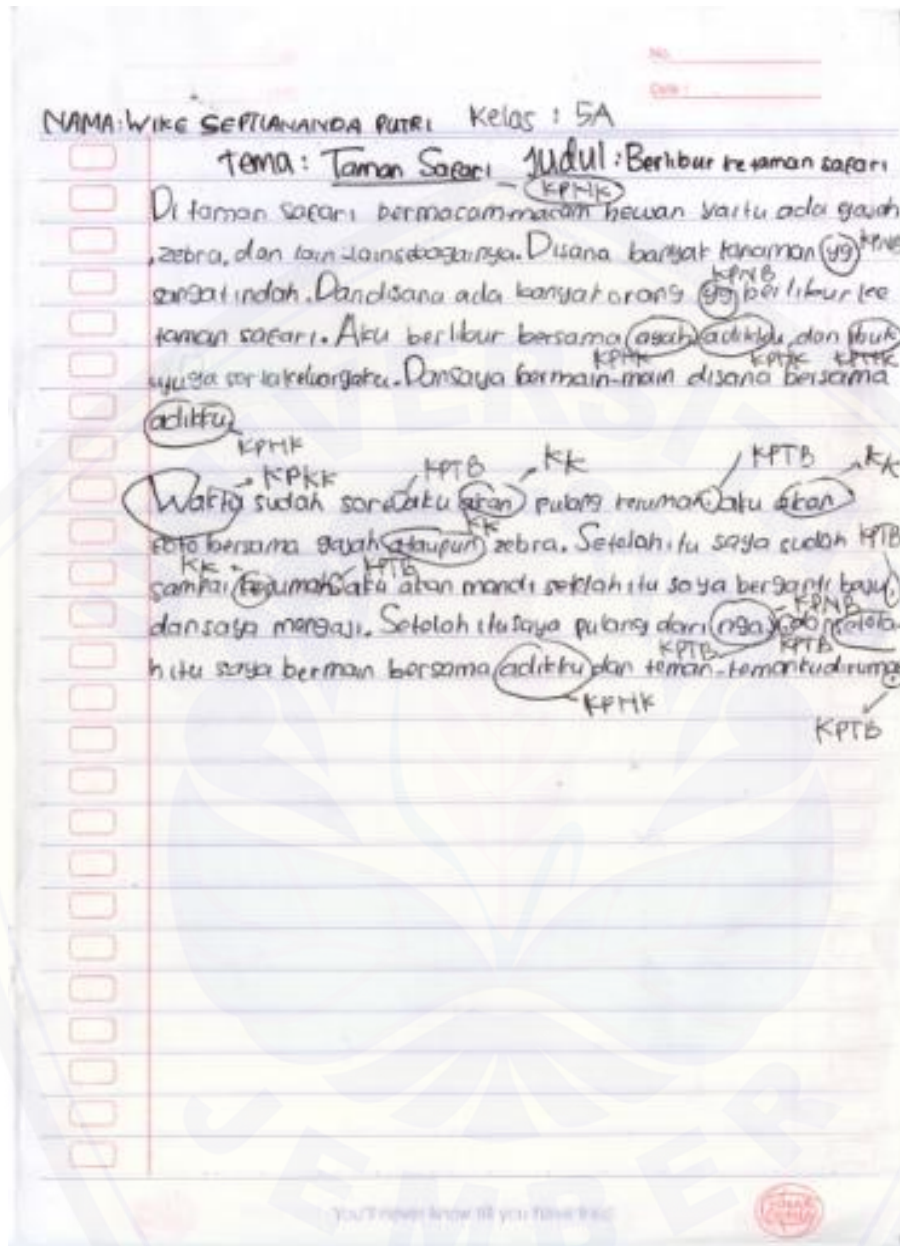 No.
Date :
NAMA: WIKE SEPTIANANDA PUTRI Kelas : 5A
Tema: Taman Safari Judul : Berlibur ke taman safari
KPHK
Di taman safari bermacammacam hewan yaitu ada gajah
, zebra, dan lain-lainsebagainya. Disana banyak tanaman yg KPNB
KPNB
sangat indah. Dandisana ada banyak orang yg berlibur ke
taman safari. Aku berlibur bersama ayah, adikku, dan ibuk
KPHK KPHK KPHK
juga serta keluargaku. Dansaya bermain-main disana bersama
adikku.
KPHK
KPKK KPTB KK KPTB KK
Waktu sudah sore aku akan pulang kerumah aku akan
KK
foto bersama gajah ataupun zebra. Setelah itu saya sudah KPTB
KK KPTB
sampai kerumah aku akan mandi seklah itu saya berganti baju,
KPNB
dansaya mengaji. Setelah itusaya pulang dari nga dan setela
KPTB KPTB
h itu saya bermain bersama adikku dan teman-temankudiruma
KPHK
KPTB
You'll never know till you have tried
UNIVERSITAS JEMBER